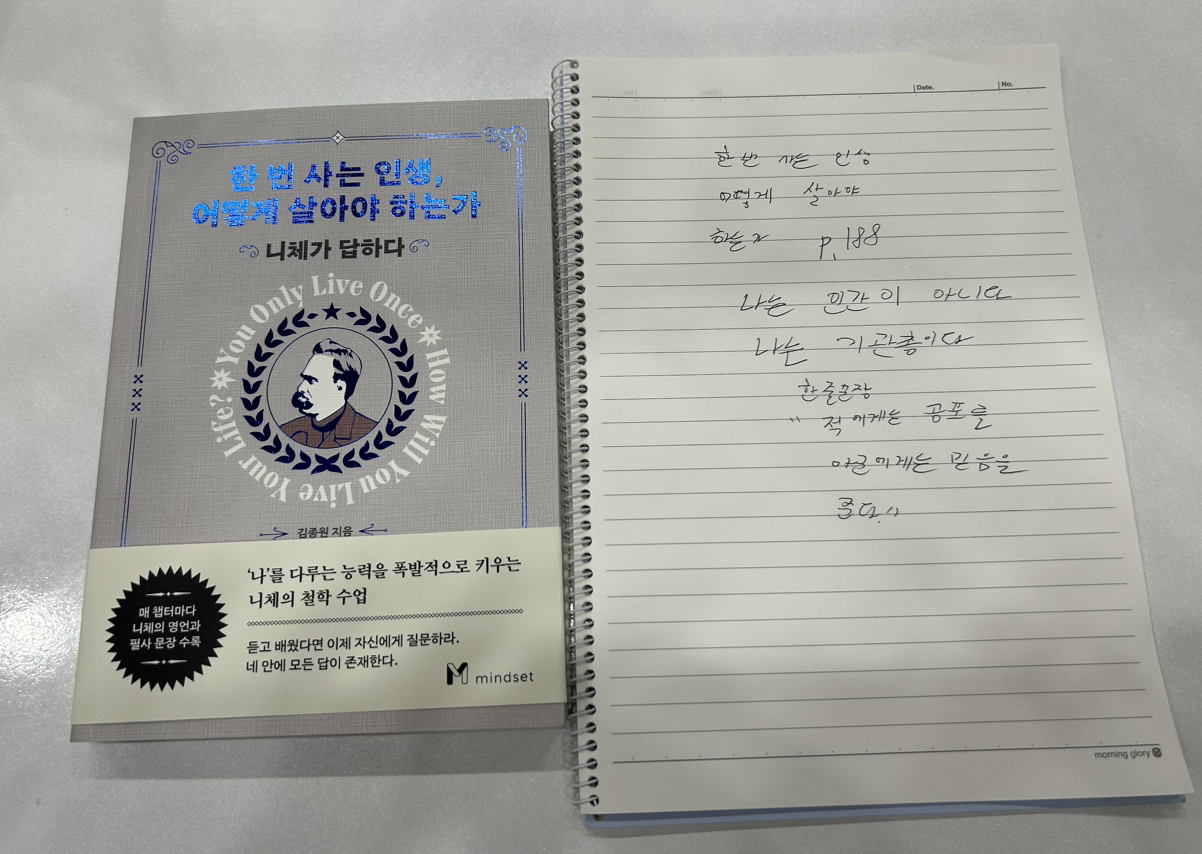 한 번 사는 인생,
어떻게 살아야 하는가
니체가 답하다
You Only Live Once
How Will You Live Your Life?
김종원 지음
'나'를 다루는 능력을 폭발적으로 키우는
니체의 철학 수업
매 챕터마다
니체의 명언과
필사 문장 수록
듣고 배웠다면 이제 자신에게 질문하라.
네 안에 모든 답이 존재한다.
mindset
Date. No.
한 번 사는 인생
어떻게 살아야
하는가 p.188
나는 인간이 아니다
나는 기관총이다
"적에게는 공포를
아군에게는 믿음을
준다."
morning glory